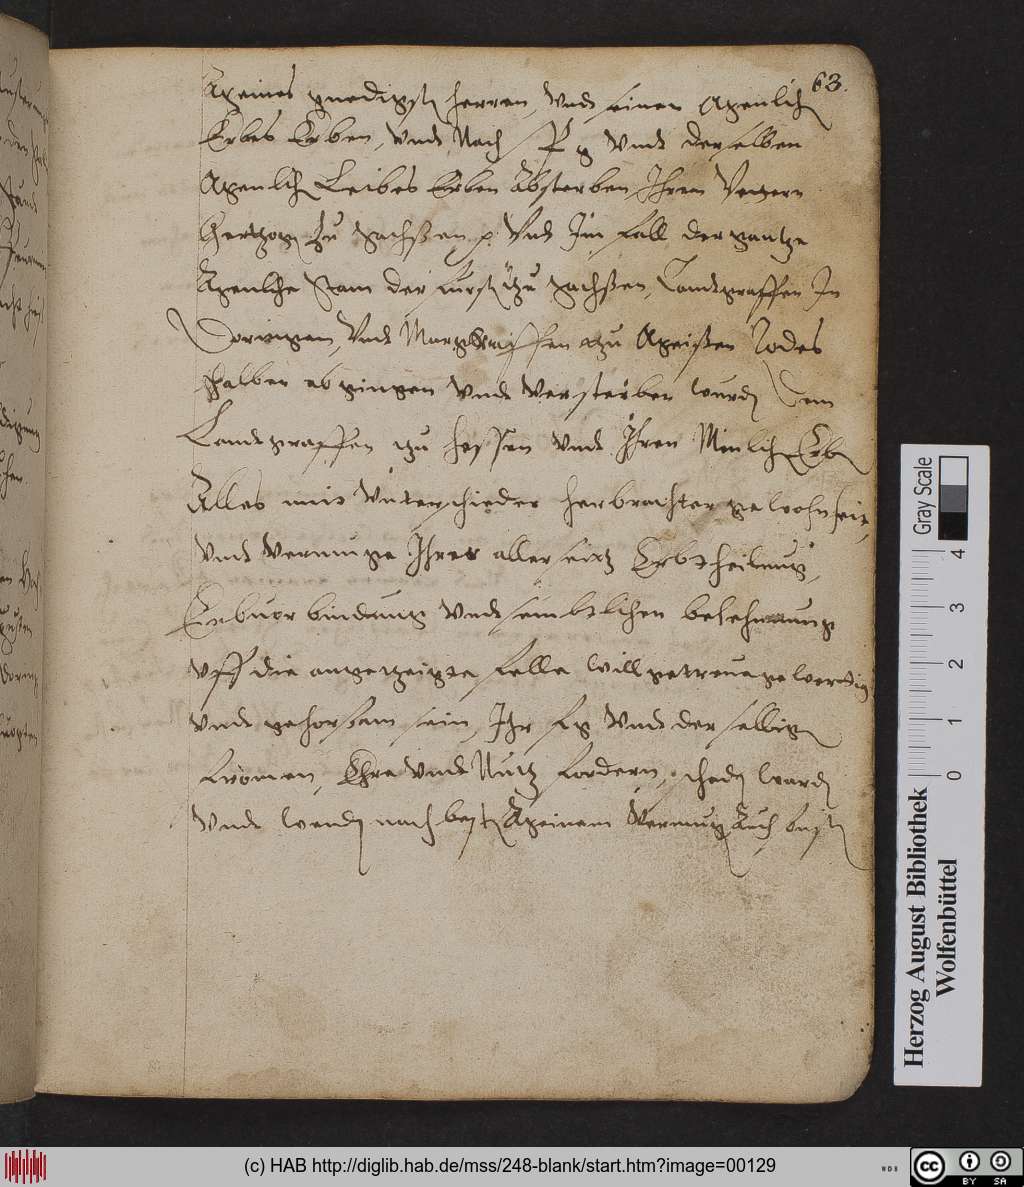 63.
Meines gnedigst herren, Vnd seiner Menlich
Leibes Erben, vnd Nach S F g vnd derselben
Menlich Leibes Erben Absterben, Ihrem Vettern
Hertzog zu Sachssen p Vnd Im fall der gantze
Menliche Stam der Furst zu Sachssen, Landgraffen In
Doringen, Vnd Marggraffen zu Meissen Todes
halben abgingen vnd versterben wurd, Dem
Landgraffen zu Hessen vnd Ihren Menlich Erb
Alles mit Vnterschiedes herbrachter gewohnheit,
Vnd vermuge Ihrer allerseitz Erbtheilung,
Erbuorbindung Vnd semtlichen belehnung
vff die angetzeigte felle will getreue gewertig
vnd gehorsam sein, Ihr F g Vnd der selbig
fromen, Ehre vnd Nutz fordern, schad warn
Vnd wend nach best Meinem Vermug Auch sust
Gray Scale
0 1 2 3 4
Herzog August Bibliothek
Wolfenbüttel
(c) HAB http://diglib.hab.de/mss/248-blank/start.htm?image=00129
WDB
cc BY SA